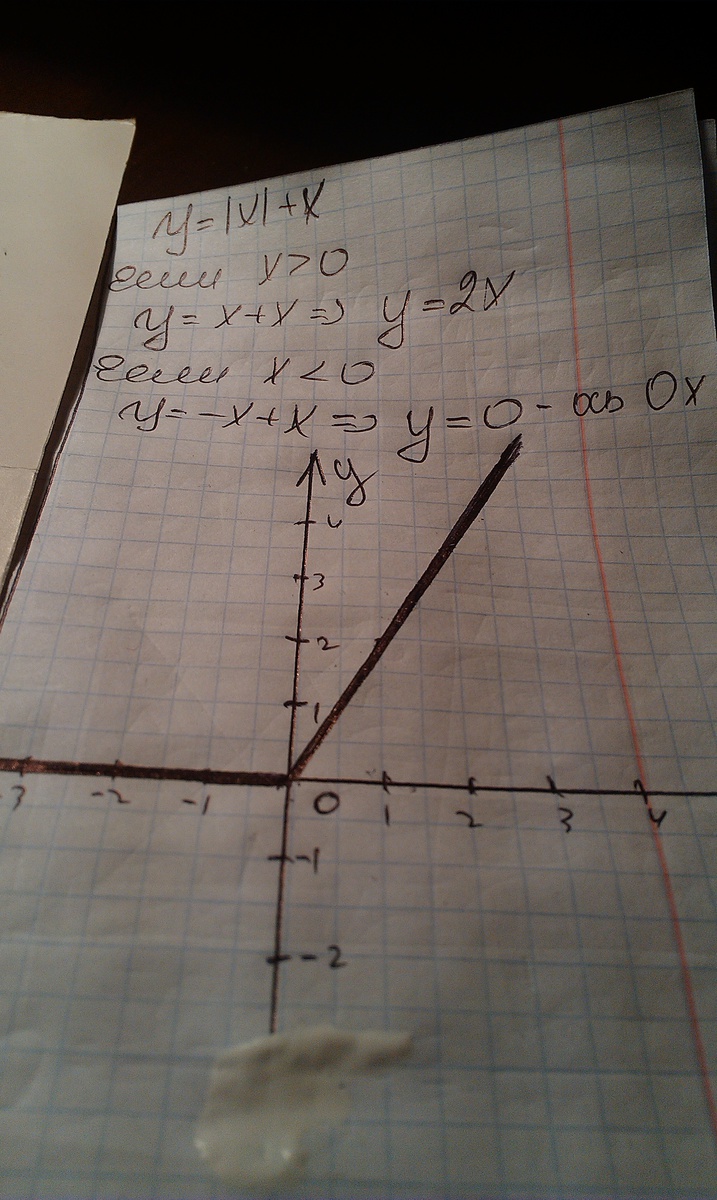 y=|x|+x
если x>0
y=x+x⇒ y=2x
если x<0
y=-x+x⇒ y=0- ось Ox
y
4
3
2
1
-3 -2 -1 0 1 2 3 4
-1
-2